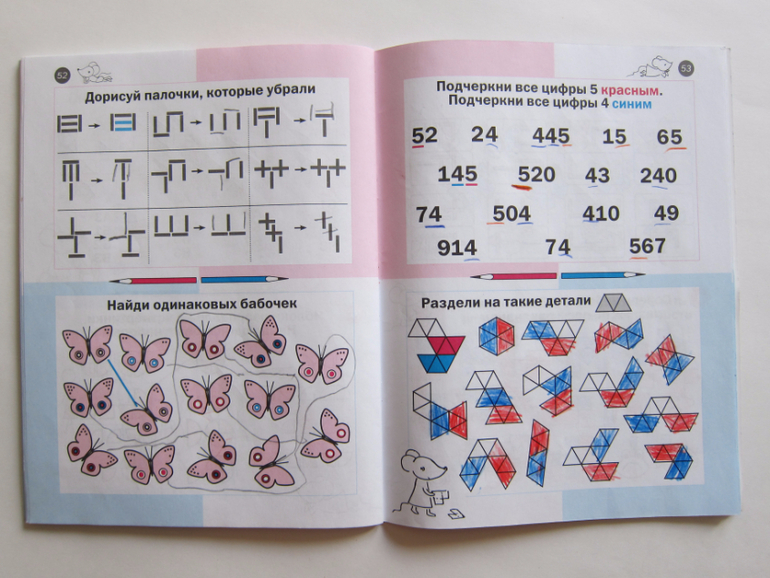 52
Дорисуй палочки, которые убрали
Найди одинаковых бабочек
53
Подчеркни все цифры 5 красным.
Подчеркни все цифры 4 синим
52 24 445 15 65
145 520 43 240
74 504 410 49
914 74 567
Раздели на такие детали